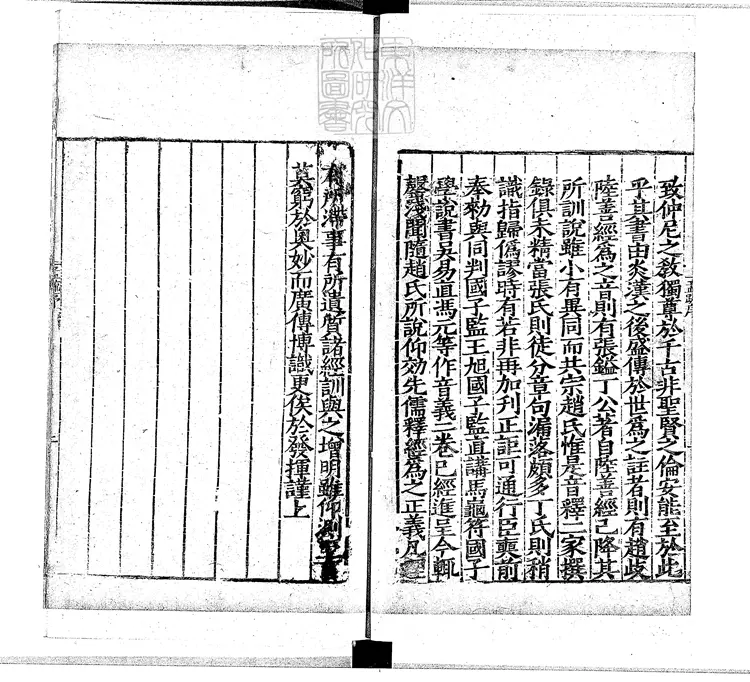 致仲尼之教獨尊於千古非聖賢之倫安能至於此
乎其書由炎漢之後盛傳於世爲之註者則有趙歧
陸善經爲之音則有張鎰丁公著自陸善經已降其
所訓說雖小有異同而共宗趙氏惟是音釋二家撰
錄俱未精當張氏則徒分章句漏落頗多丁氏則稍
識指歸僞謬時有若非再加刊正詎可通行臣奭前
奉勑與同判國子監王旭國子監直講馬龜符國子
學說書吳易直馮元等作音義二卷已經進呈今輒
罄淺聞隨趙氏所說仰效先儒釋經爲之正義凡
有所滯事有所遺質諸經訓與之增明雖仰測至
莫窮於奥妙而廣傳博識更俟於發揮謹上
東洋文化研究所圖書